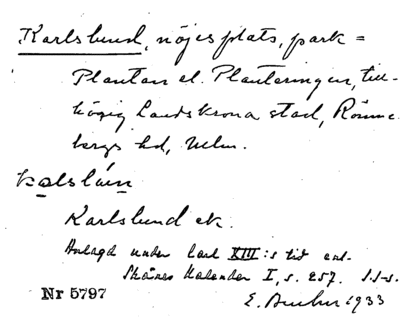 Karlslund, nöjesplats, park =
Plantan el. Planteringen, till-
hörig Landskrona stad, Rönne-
bergs hd, Mlm.
kalslún
Karlslund ek.
Anlagd under Carl XIII:s tid enl.
Skånes Kalender I, s. 257.
Nr 5797
E. 1933